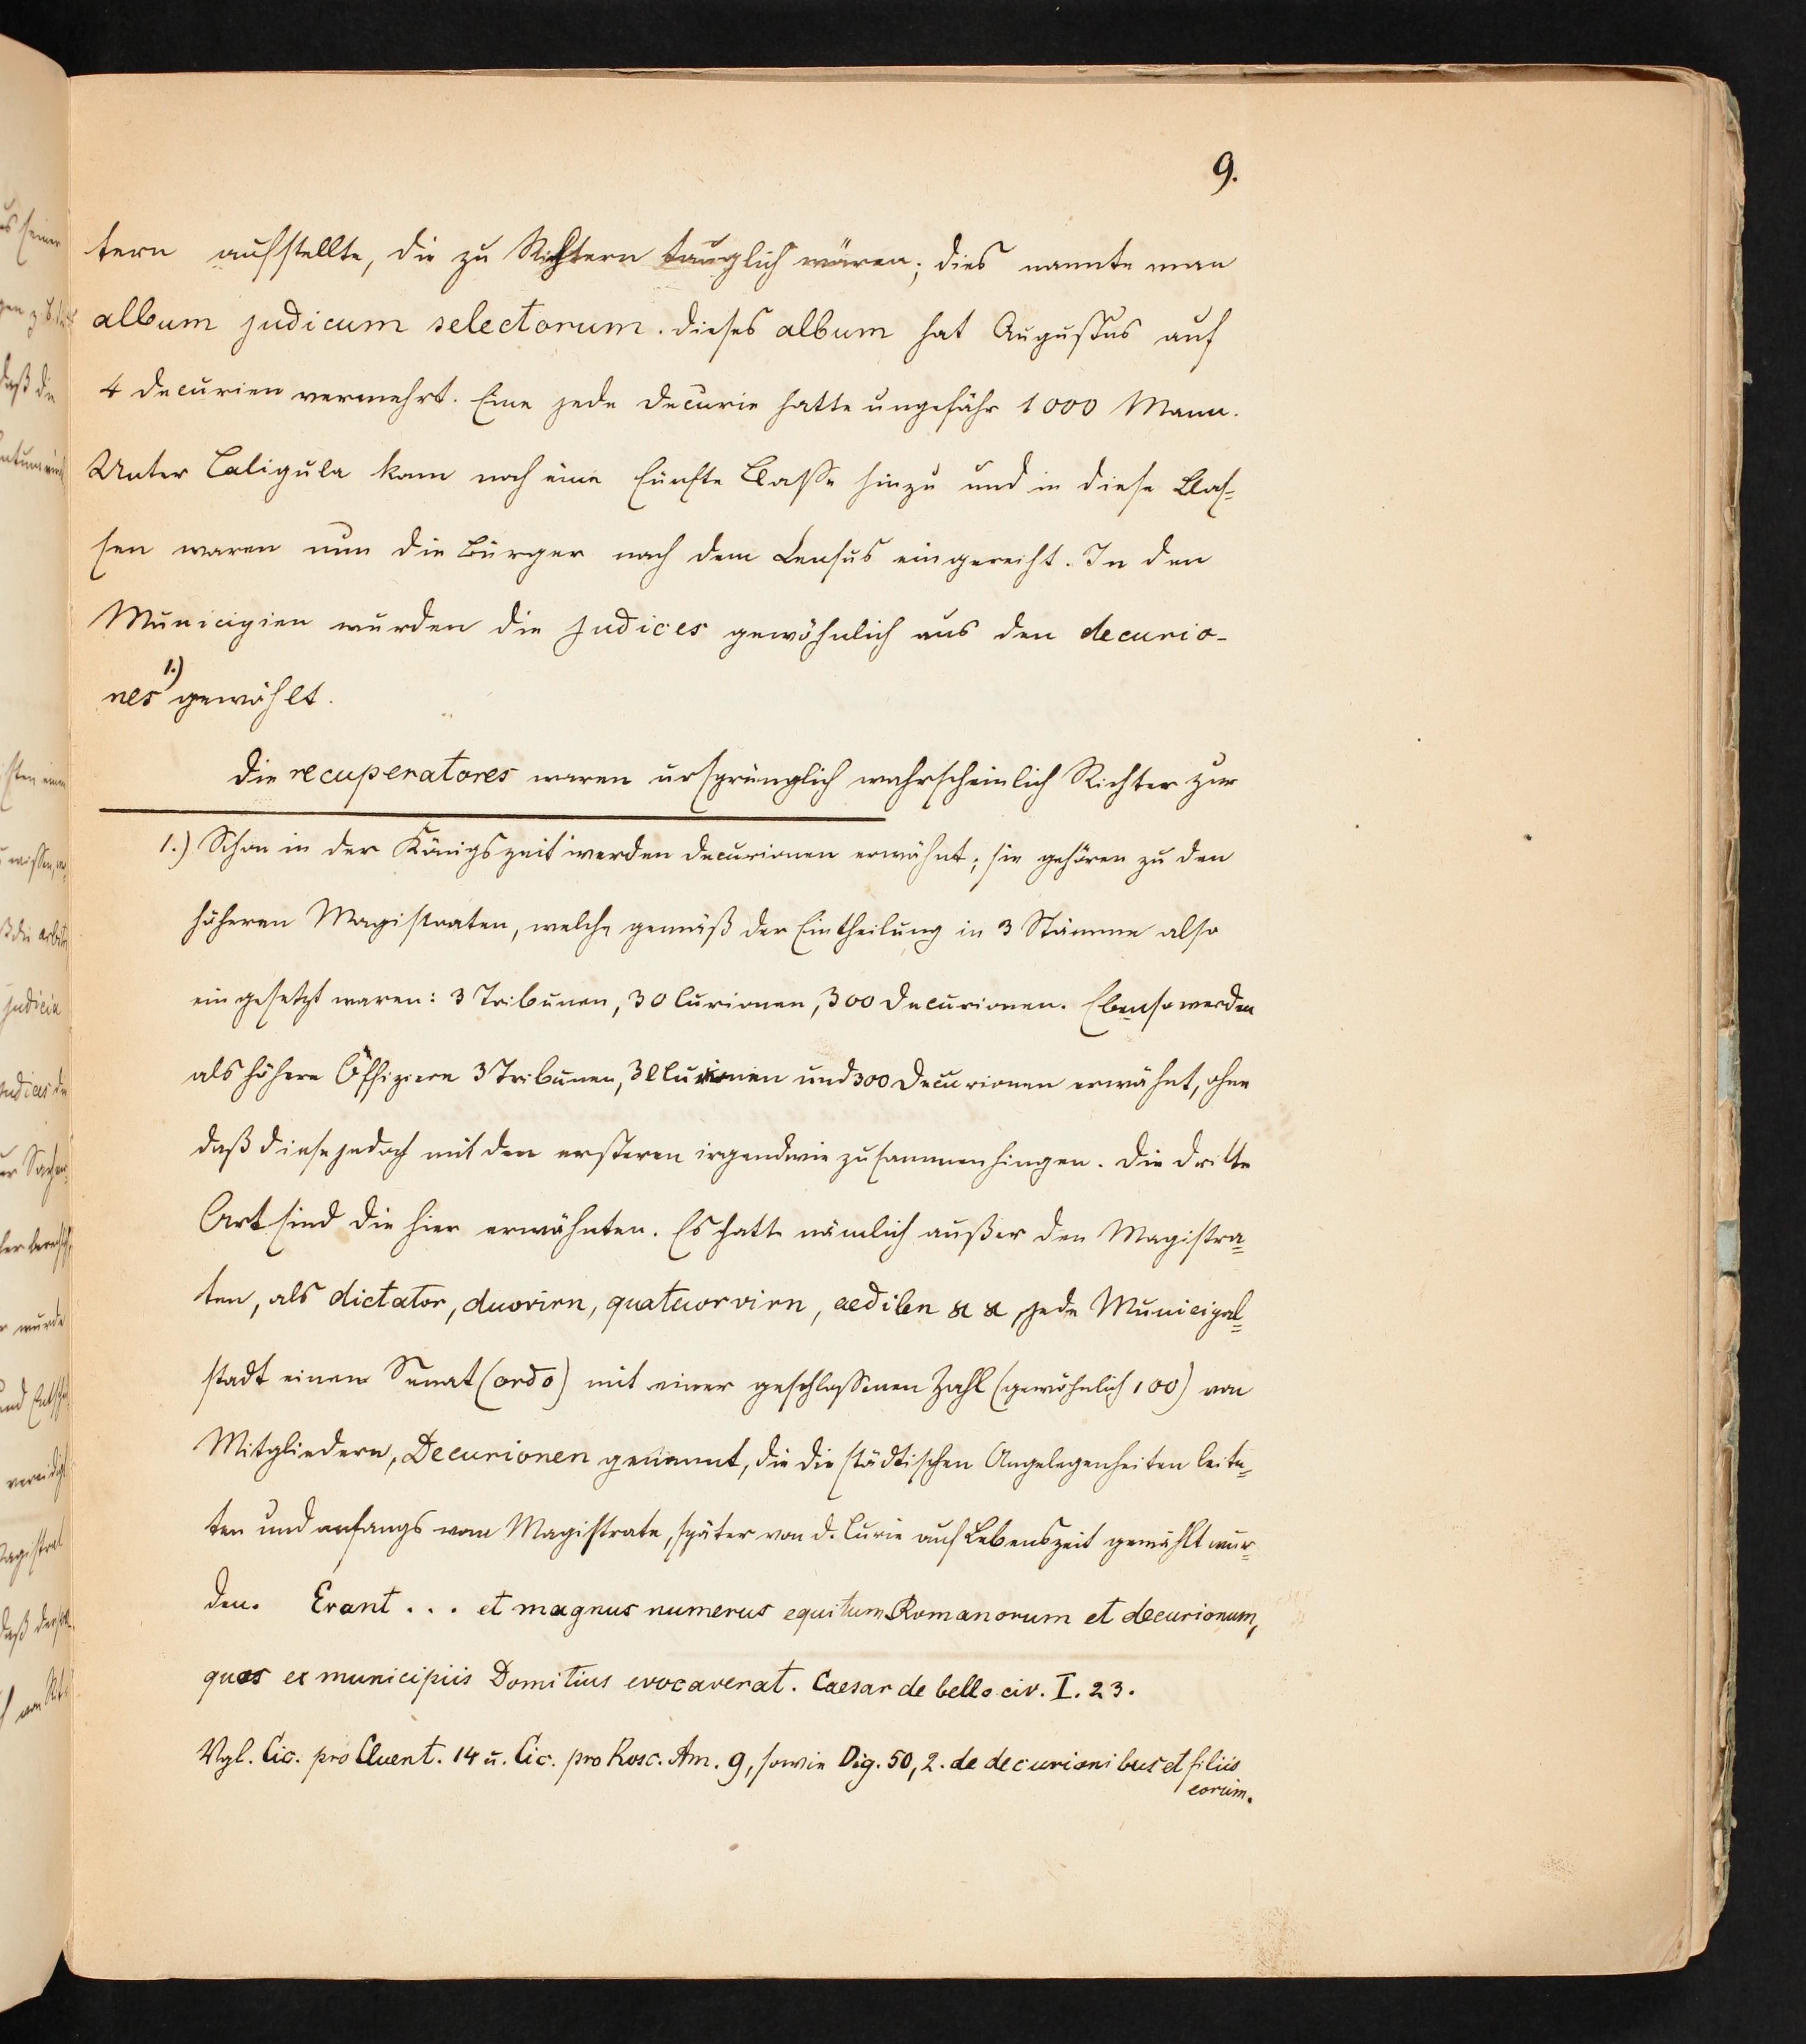 9.
tern aufstellte, die zu Richtern tauglich wären; dies nannte man
album judicum selectorum. Dieses album hat Augustus auf
4 Decurien vermehrt. Eine jede Decurie hatte ungefähr 1000 Mann.
Unter Caligula kam noch eine fünfte Classe hinzu und in diese Clas=
sen waren nun die Bürger nach dem Census eingereiht. In den
Municipien wurden die judices gewöhnlich aus den decurio-
nes 1.) gewählt.
Die recuperatores waren ursprünglich wahrscheinlich Richter zur
1.) Schon in der Königszeit werden Decurionen erwähnt; sie gehören zu den
höheren Magistraten, welche gemäß der Eintheilung in 3 Stämme also
eingesetzt waren: 3 Tribunen, 30 Curionen, 300 Decurionen. Ebenso werden
als höhere Offiziere 3 Tribunen, 30 Curionen und 300 Decurionen erwähnt, ohne
daß diese jedoch mit den ersteren irgendwie zusammenhingen. Die dritte
Art sind die hier erwähnten. Es hatte nämlich außer den Magistra=
ten, als dictator, duovirn, quatuorvirn, aedilen & & jede Municipal=
stadt einen Senat (ordo) mit einer geschlossenen Zahl (gewöhnlich 100) von
Mitgliedern, Decurionen genannt, die die städtischen Angelegenheiten leite=
ten und anfangs vom Magistrate, später von d. Curie auf Lebenszeit gewählt wur=
den. Erant ... et magnus numerus equitum Romanorum et decurionum,
quos ex municipiis Domitius evocaverat. Caesar de bello civ. I. 23.
Vgl. Cic. pro Cluent. 14 u. Cic. pro Rosc. Am. 9, sowie Dig. 50, 2. de decurionibus et filiis
eorum.